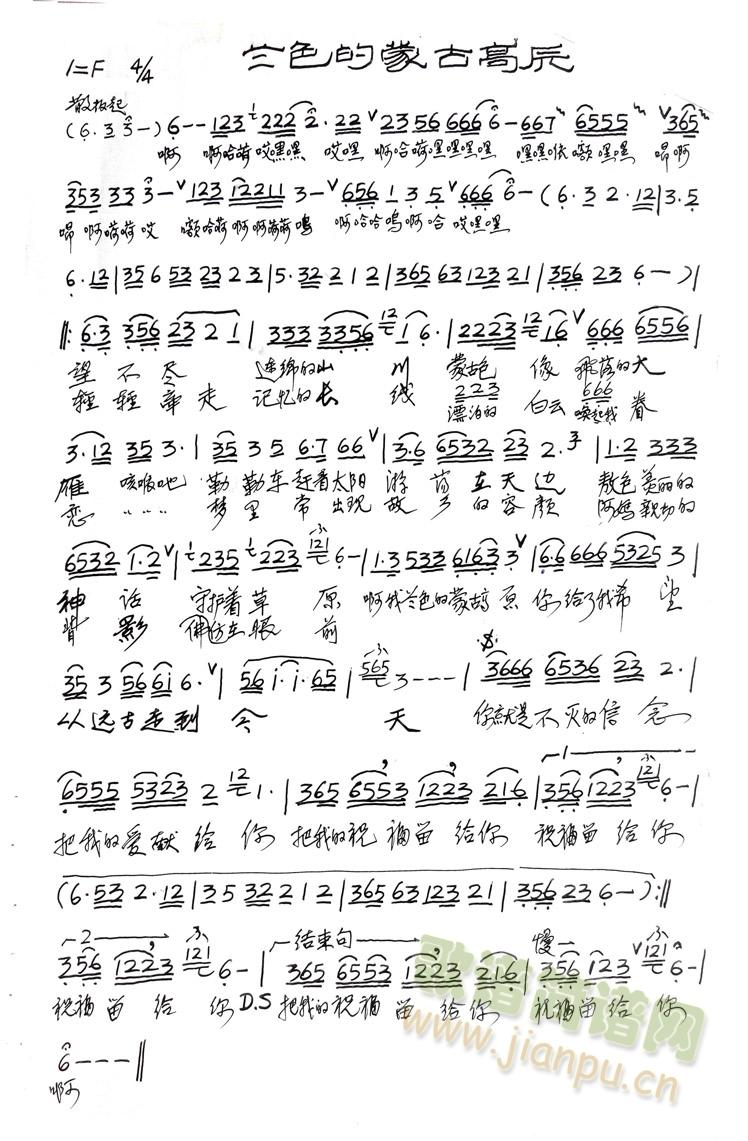 1=F 4/4 兰色的蒙古高原
散板起
(6·3 3-) 6-- 123 1 222 2·22 ∨ 23 56 666 6-667 6555 ∨ 365
啊 啊哈荷哎嘿嘿 哎嘿 啊哈荷嘿嘿嘿嘿 嘿嘿 嘿嘿 啊
353 33 3-∨ 123 12211 3-∨ 656 1 3 5 ∨ 666 6-(6·3 2·12|3·5
啊荷荷哎 哈荷啊啊荷荷嗚 啊哈哈嗚啊哈 哎嘿嘿
6·12|35 6 53 23 2 3|5·32 2 1 2|365 63 123 21|356 23 6--)|
||:6·3 356 23 2 1|333 3356 12 1 6·|2223 12 16 ∨ 666 6556|
望不尽 连绵的山 川 蒙古包 像 飛落的大
種種牽走 记忆的长 线 223 漂泊的 白云 666 唤起我 眷
3·12 35 3·|35 3 5 6·7 66 ∨|3·6 6532 23 2· 3|1·2 333
雁 勒勒车赶着太阳 游荡在天边 敖包美丽的
恋 〃〃〃 梦里常出现 故乡的容颜 阿妈親切的
6532 1·2 ∨|1 235 1 223 121 6-|1·3 533 6163 3 ∨|6·6 666 5325 3|
神话 守护着草 原 啊我兰色的蒙古高原 你给了我希望
背影 佛彷在眼 前
35 3 566 6i 6·∨|56 i·i·65|565 3---|3666 6536 23 2·|
从远古走到 今 天 你就是不灭的信念
6555 5323 2 12 1·|365 6553 1223 216|356 1223 121 6-|
把我的爱献给你 把我的祝福留给你 祝福留给你
(6·53 2·12|35 32 2 1 2|365 63 123 21|356 23 6-):||
2 结束句 慢
356 1223 121 6-|365 6553 1223 216|356 123 ∨ 121 6-|
祝福留给你 D.S 把我的祝福留给你 祝福留给你
6---||
啊
歌谱简谱网
www.jianpu.cn